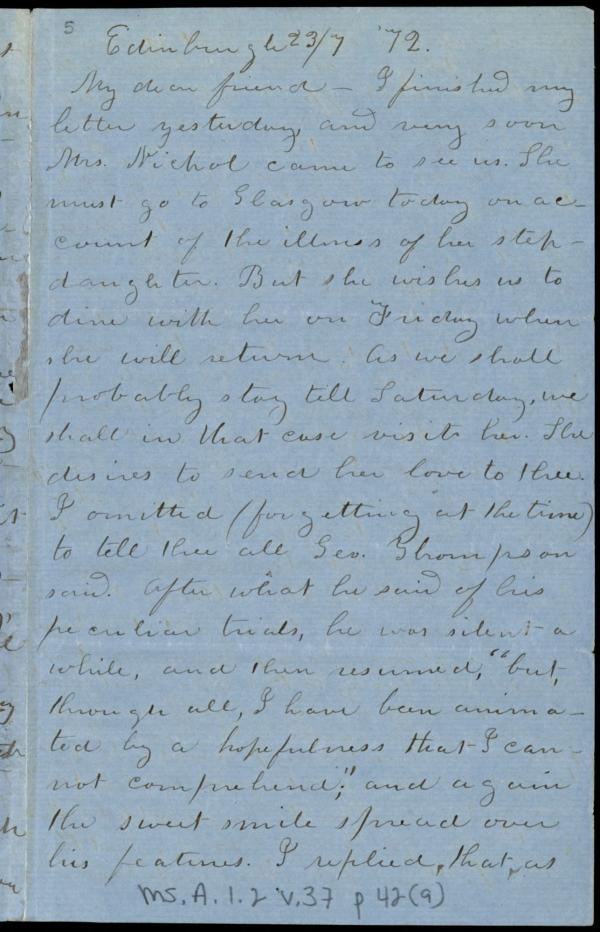 5
Edinburgh 23/7 '72.
My dear friend - I finished my
letter yesterday, and very soon
Mrs. Nichol came to see us. She
must go to Glasgow today on ac-
count of the illness of her step-
daughter. But she wishes us to
dine with her on Friday when
she will return. As we shall
probably stay till Saturday, we
shall in that case visit her. She
desires to send her love to thee.
I omitted (forgetting at the time)
to tell thee all Geo. Thompson
said. After what he said of his
peculiar trials, he was silent a
while, and then resumed, "but,
through all, I have been anima-
ted by a hopefulness that I can-
not comprehend;" and again
the sweet smile spread over
his features. I replied, that, as
MS.A.1.2 v.37 p 42(a)